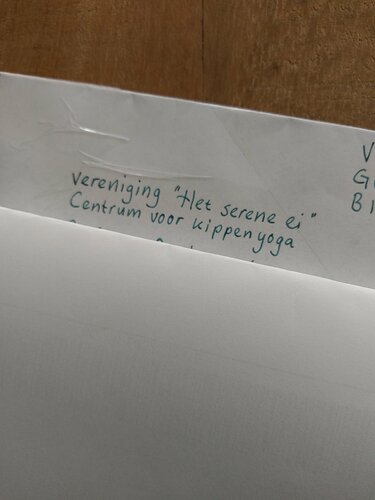 Vereniging "Het serene ei"
Centrum voor kippenyoga
V
G
B